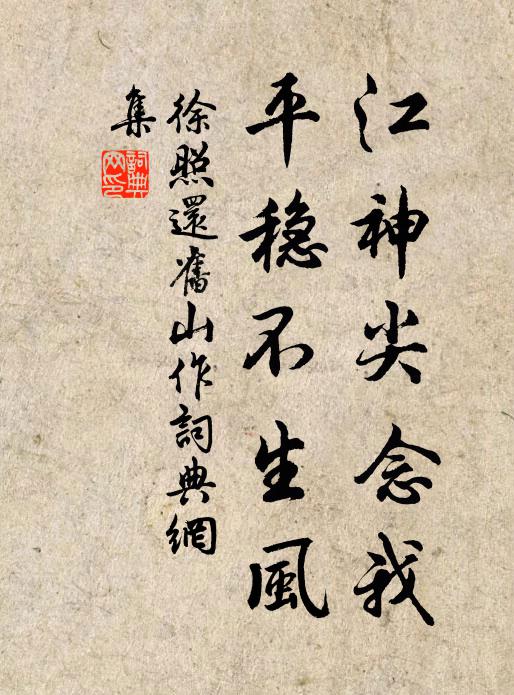 江神尖念我
平穩不生風
徐照還舊山作詞典網
集
詞典
网印